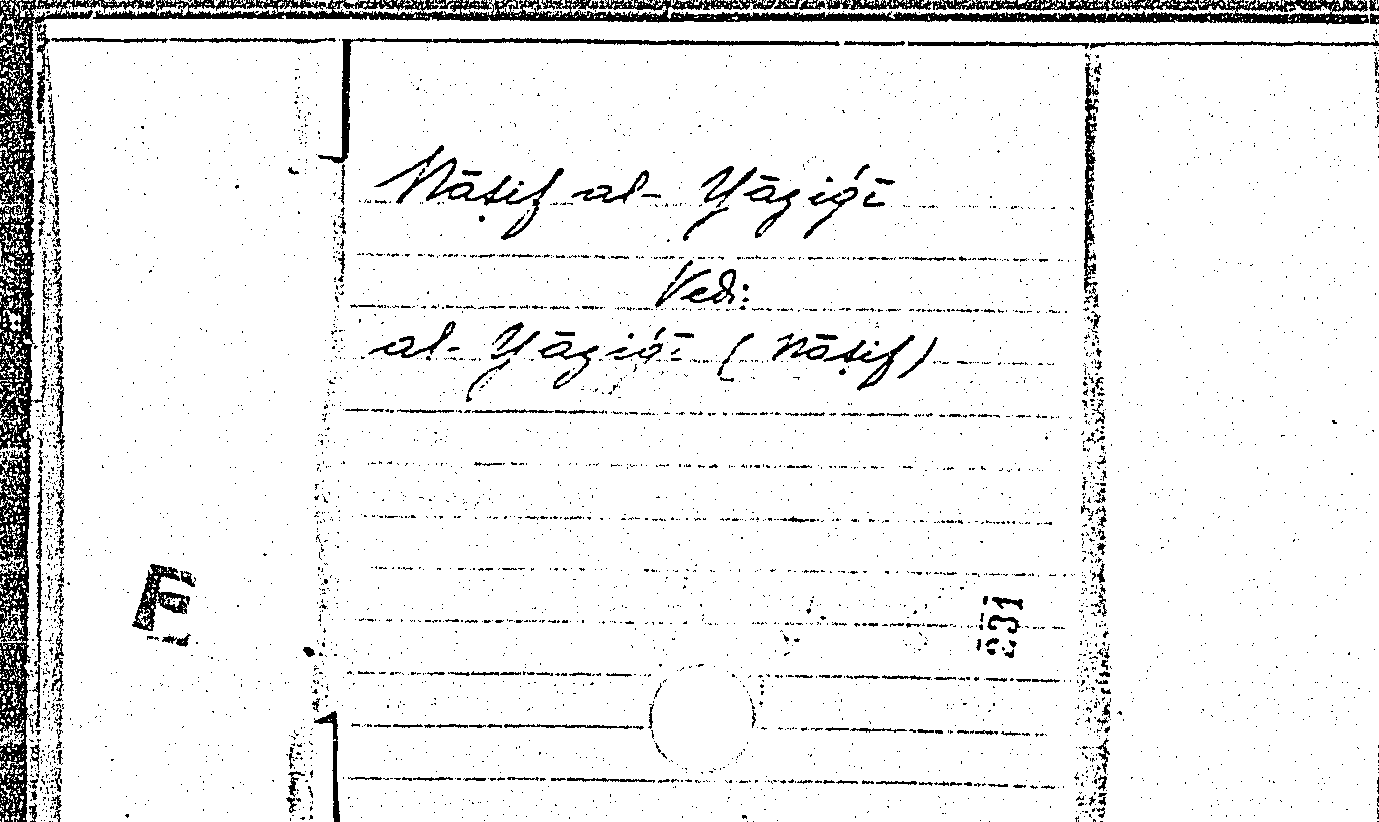 Nāṣif al-Yāziǧī
Vedi:
al-Yāziǧī (Nāṣif)
E
231